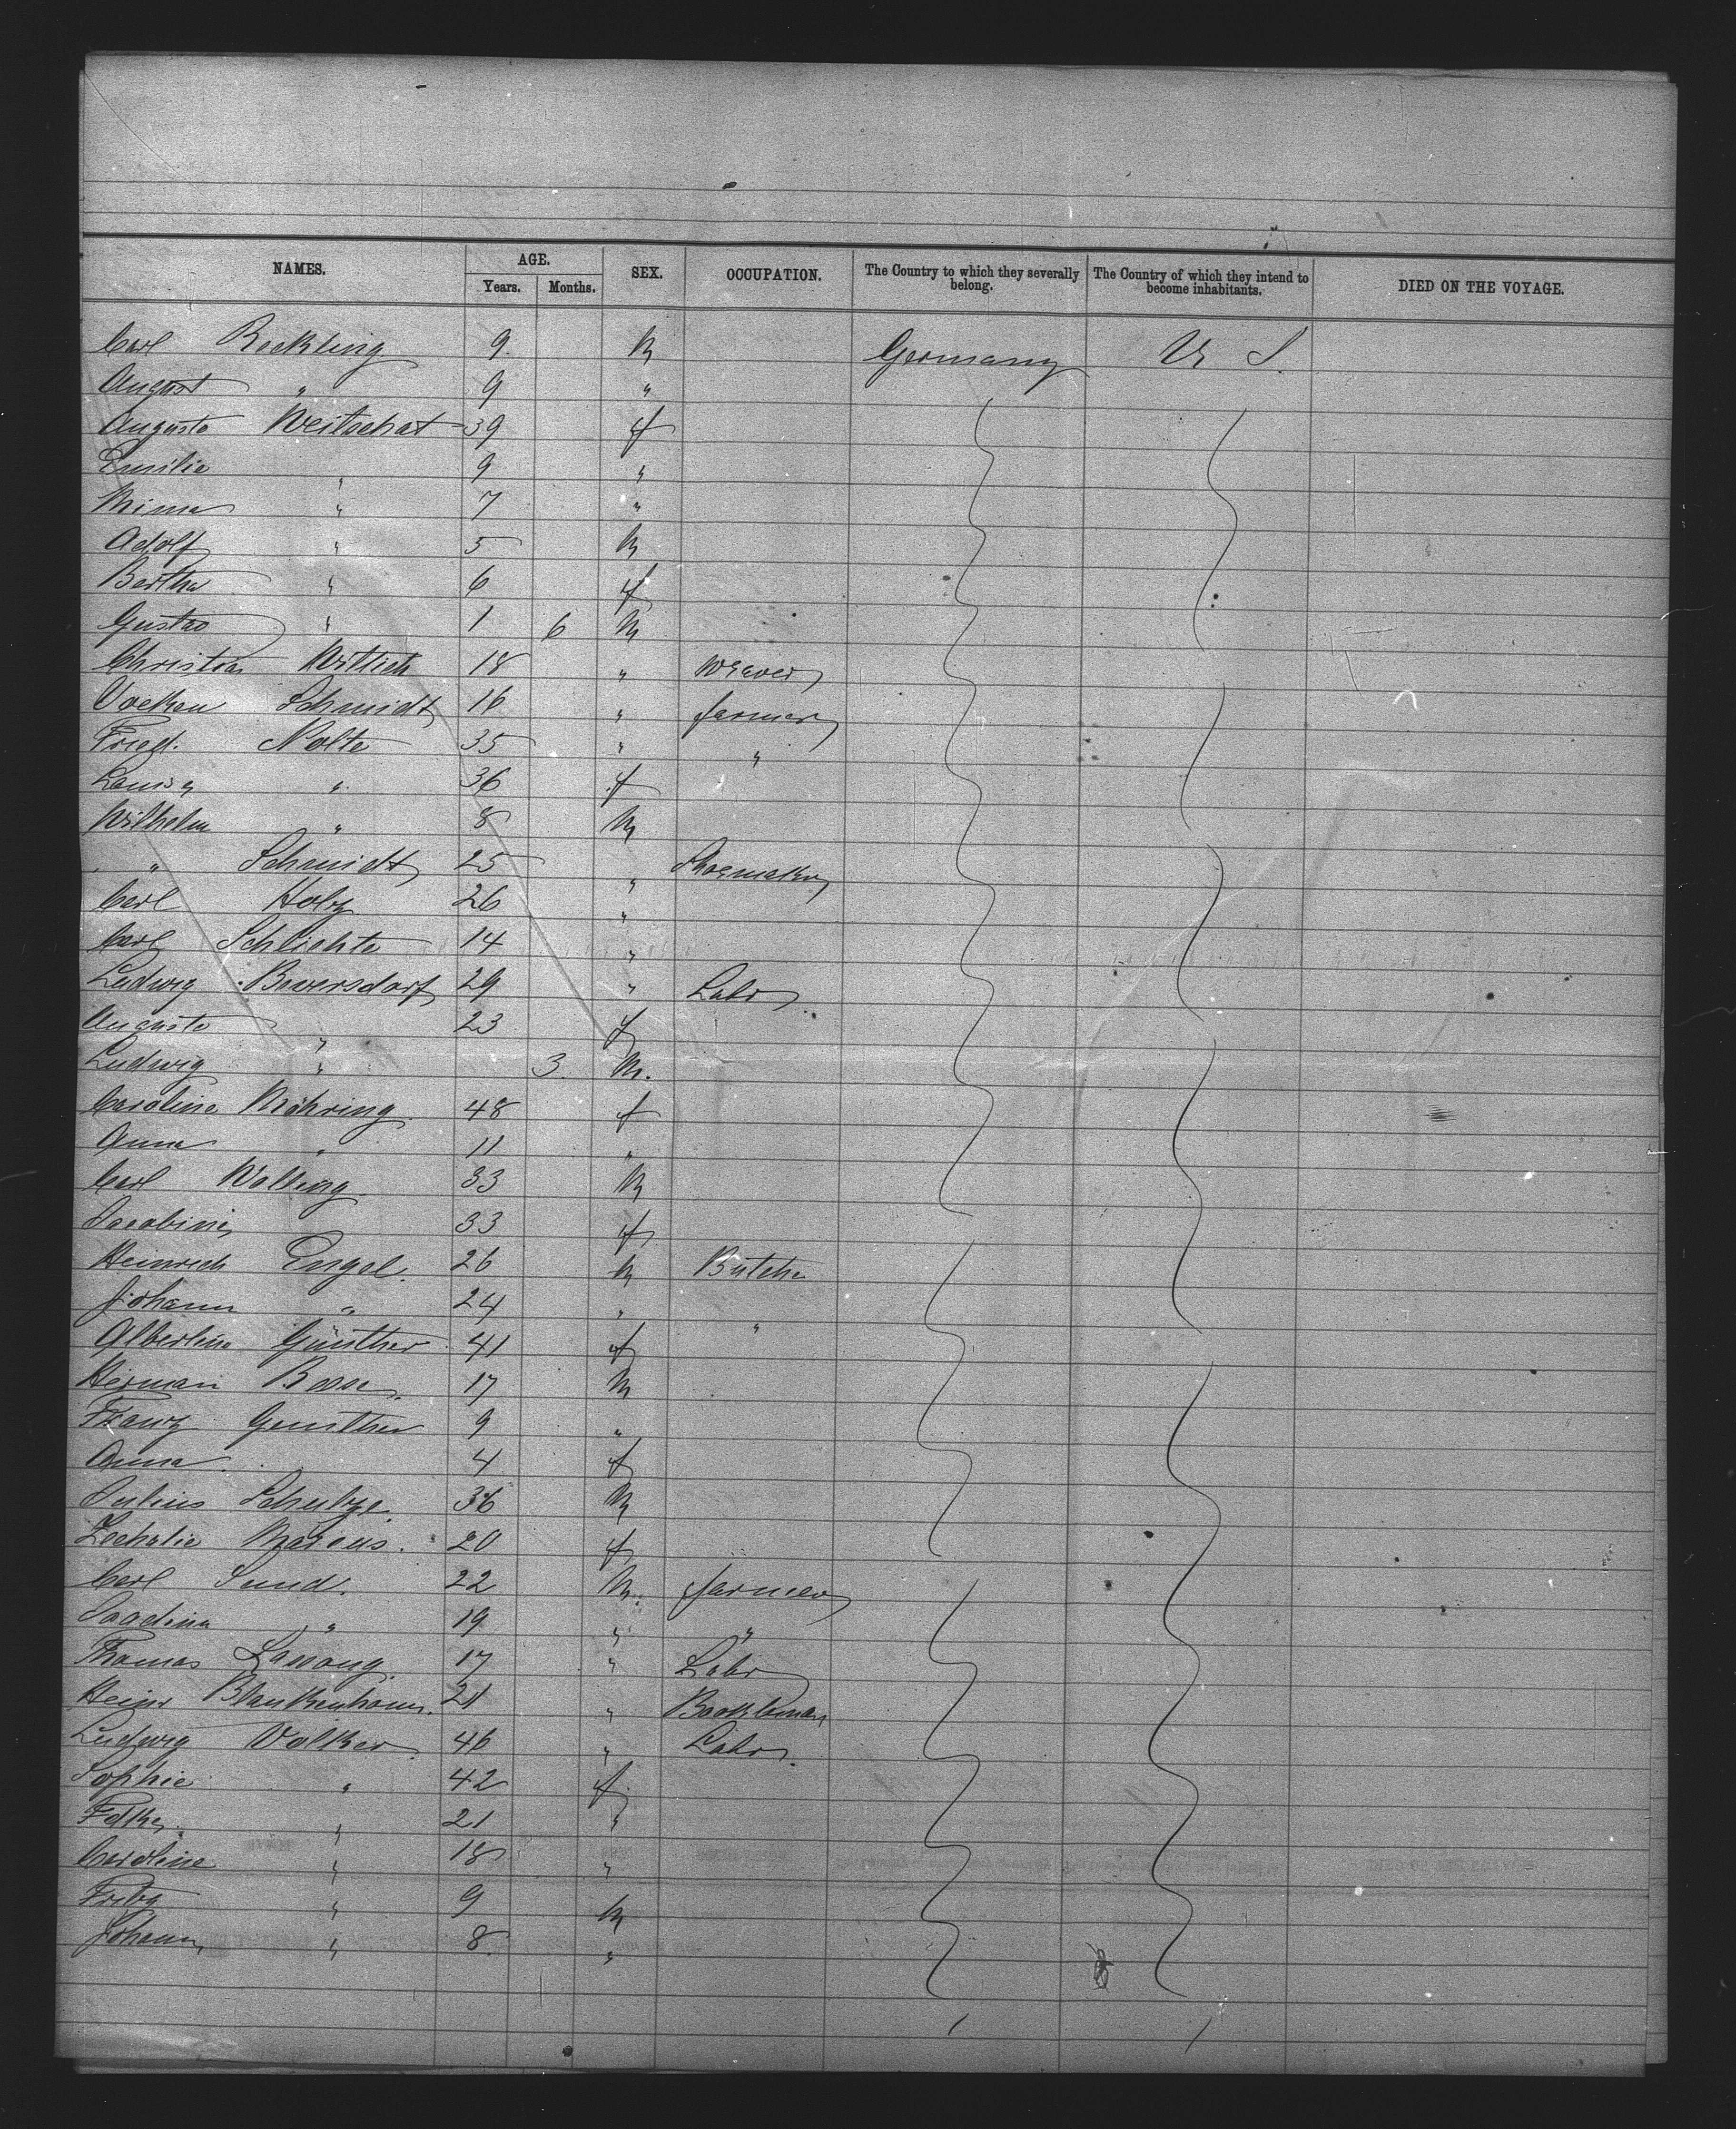 NAMES. AGE. Years. Months. SEX. OCCUPATION. The Country to which they severally belong. The Country of which they intend to become inhabitants. DIED ON THE VOYAGE.
Carl Reckling 9 M Germany U S.
August " 9 "
Auguste Weitschat 39 f
Emilie " 9 "
Mina " 7 "
Adolf " 5 M
Bertha " 6 f
Gustav " 1 6 M
Christian Wittich 18 " weaver
Schmidt 16 " farmer
Fried. Nolte 35 " "
Louisa " 36 f
Wilhelm " 8 M
" Schmidt 25 " Shoemaker
Carl Holz 26 "
Carl Schlichte 14 "
Ludwig Beversdorf 29 " Labr
Auguste " 23 f
Ludwig " 3 M.
Caroline Möhring 48 f
Anna " 11 "
Carl Walling 33 M
Jacobine 33 f
Heinrich Engel. 26 M Butcher
Johann " 24 " "
Albertine Günther 41 f
Herman 17 M
Franz Gunther 9 "
Anna 4 f
Julius Schulze. 36 M
Marcus. 20 f
Carl Lund. 22 M. farmer
" 19 " "
Thomas 17 " Labr
Heinr Blankenhorn. 21 "
Ludwig Volker 46 " Labr.
Sophie " 42 f
" 21 "
Caroline " 18 "
Fritz " 9 M
Johann " 8 "